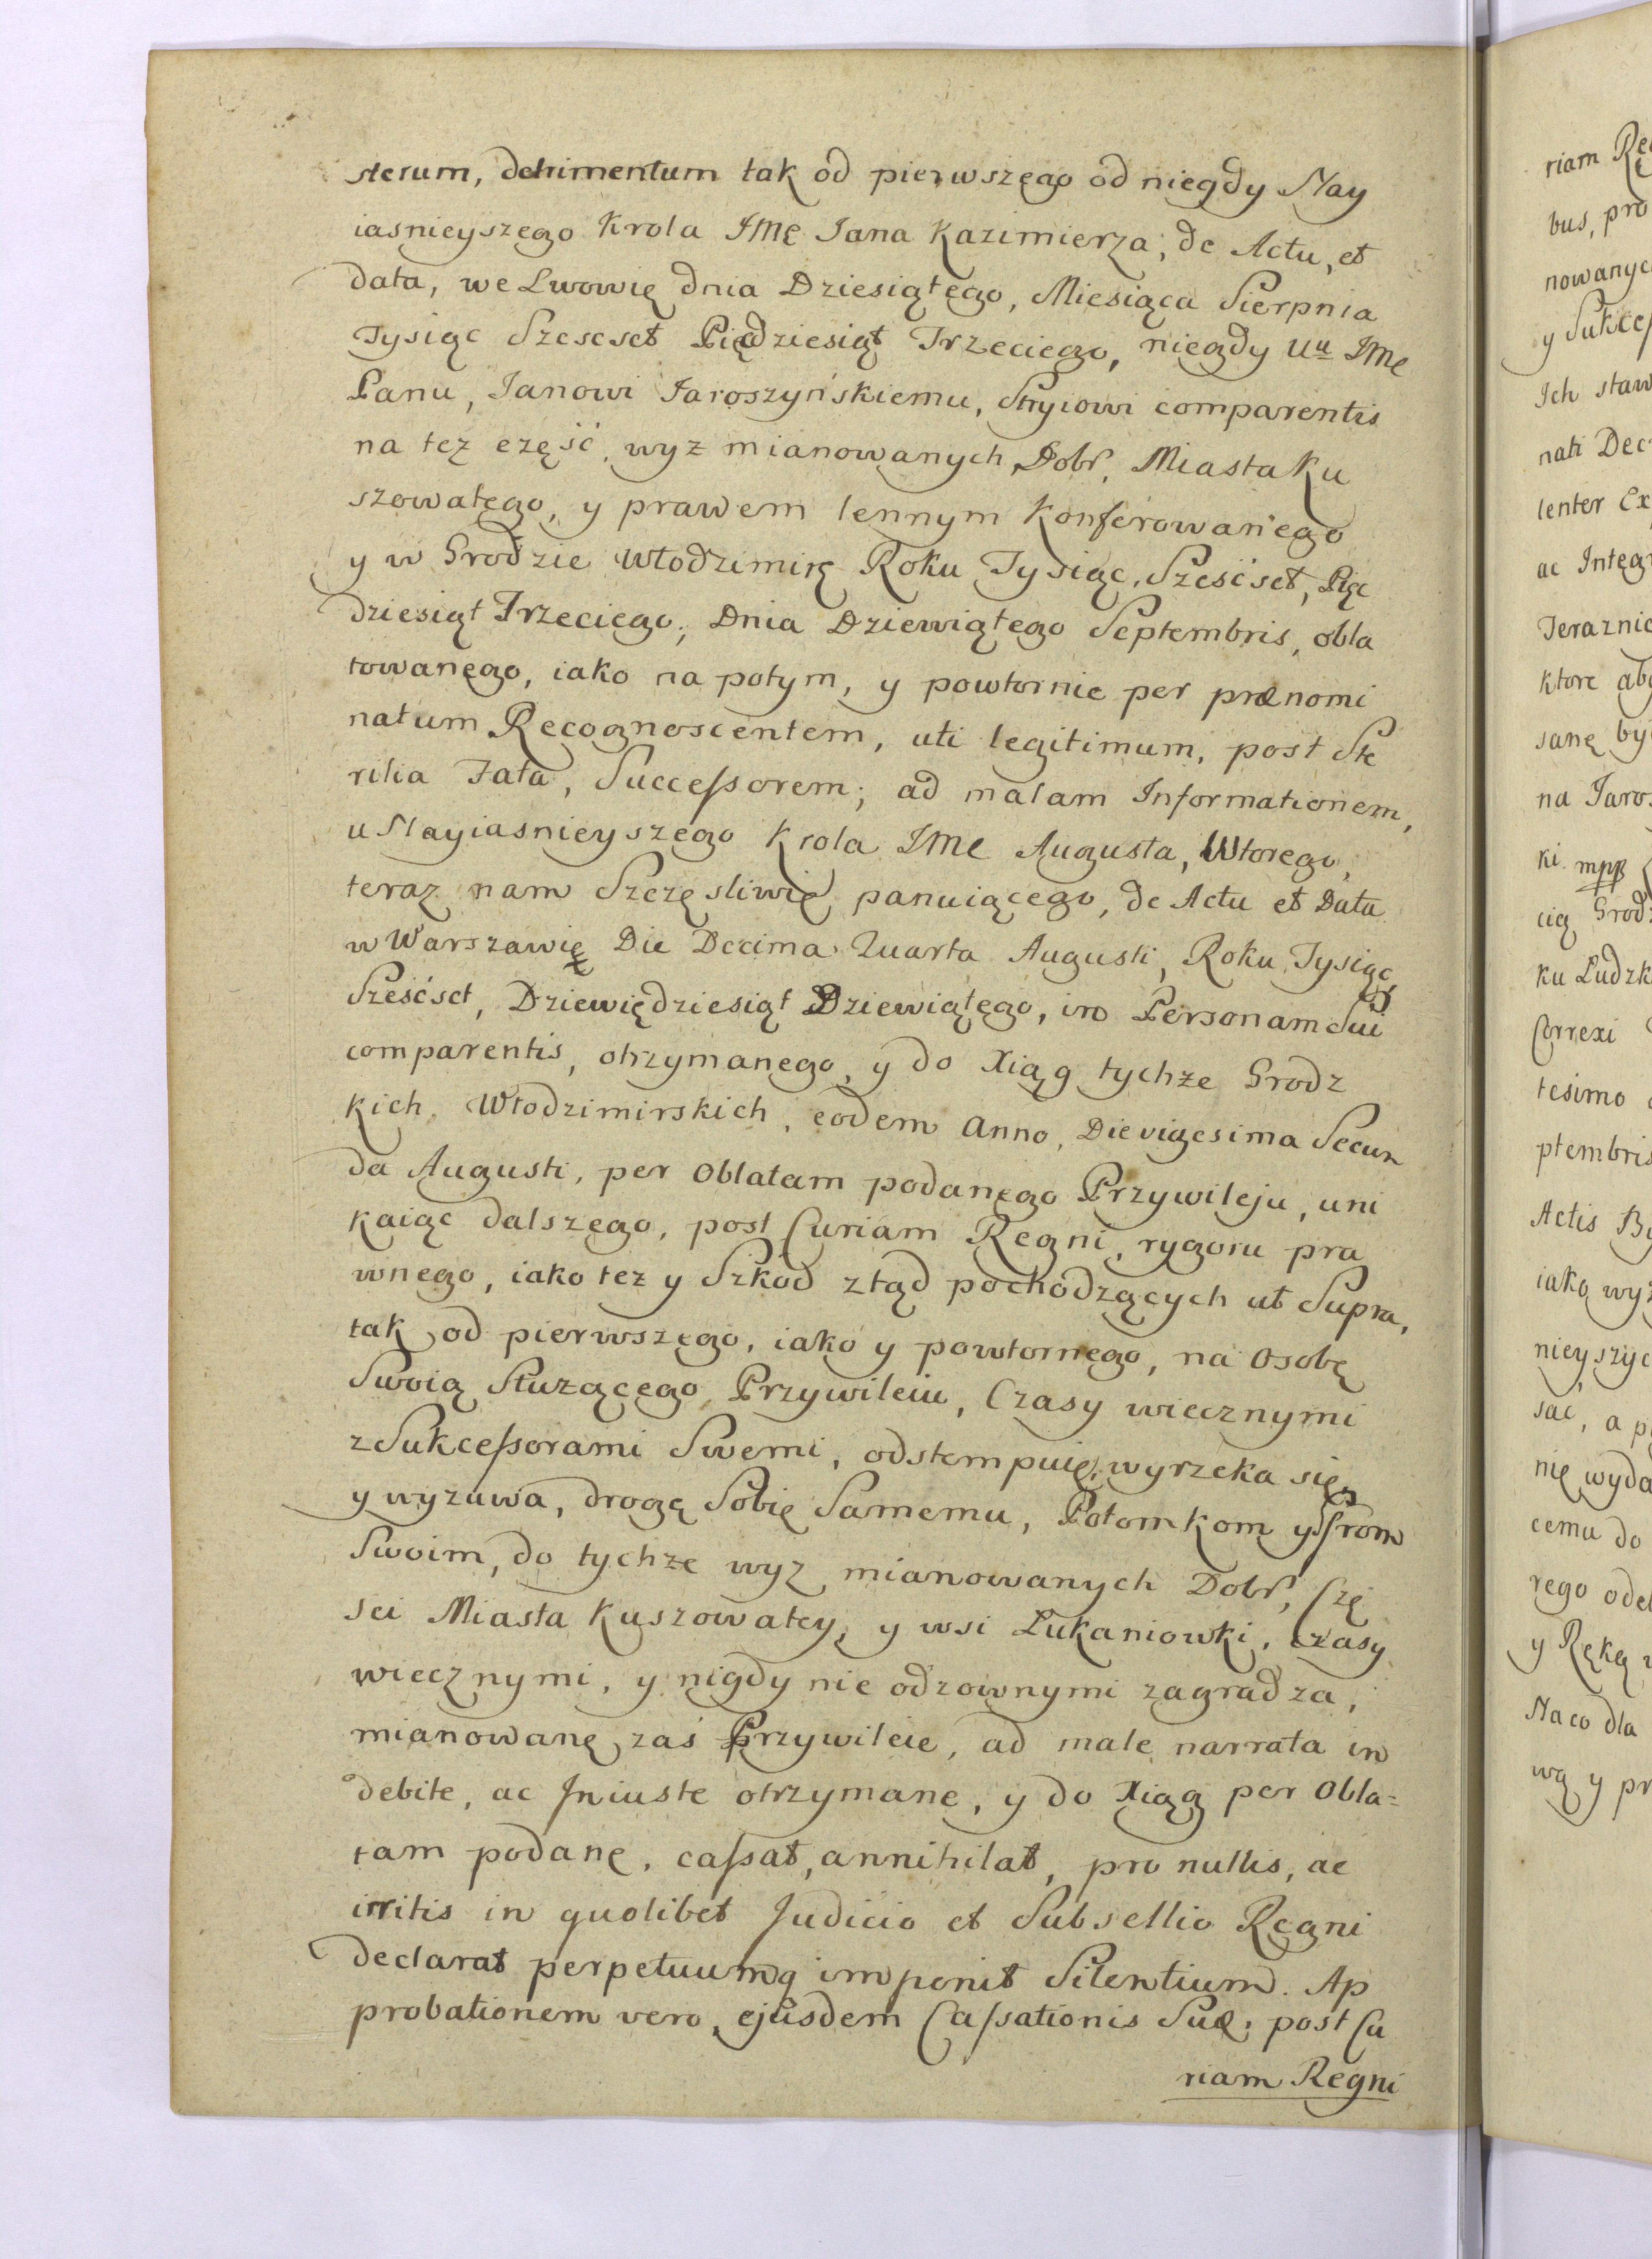 sterum, detrimentum tak od pierwszęgo od niegdy Nay
iasnieyszego Krola JMę Jana Kazimierza, de Actu, et
data, we Lwowię dnia Dziesiątęgo, Miesiąca Sierpnia
Tysiąc Szescset Pięćdziesiąt Trzeciego, niegdy Uu JMe
Panu, Janowi Jaroszyńskiemu, Stryiowi comparentis
na tęz część, wyz mianowanych Dobr, Miasta Ku
szowatęgo, y prawem lennym Konferowanego
y w Grodzie Włodzimirę Roku Tysiąc, Sześćset, Pięć
dziesiąt Trzeciego, Dnia Dziewiątego Septembris, obla
towanęgo, iako na potym, y powtornie per prænomi
natum Recognoscentem, uti legitimum, post Ste
rilia Fata, Successorem; ad malam Informationem,
u Nayiasnieyszego Krola JMe Augusta, Wtorego,
teraz nam Szczęsliwię panuiącego, de Actu et Data
w Warszawię Die Decima Quarta Augusti, Roku Tysiąc
Sześćset, Dziewiędziesiąt Dziewiątęgo, in Personam Sui
comparentis, otrzymanego, y do Xiąg tychże Grodz
kich, Włodzimirskich, eodem Anno, Die vigesima Secun
da Augusti, per Oblatam podanęgo Przywileju, uni
kaiąc dalszęgo, post Curiam Regni, rygoru pra
wnego, iako tez y Szkod ztąd pochodzących ut Supra,
tak od pierwszęgo, iako y powtornęgo, na Osobę
Swoią Słuzącęgo, Przywileiu, Czasy wiecznymi
z Sukcessorami Swemi, odstempuię, wyrzeka się,
y wyzuwa, drogę Sobię Samemu, Potomkom y Ssrom
Swoim, do tychze wyz mianowanych Dobr, Czę
sci Miasta Kuszowatey, y wsi Łukaniowki, Czasy
wiecznymi, y nigdy nie odzownymi zagradza,
mianowanę zaś Przywileie, ad male narrata in
debite, ac Jniuste otrzymane, y do Xiąg per Obla=
tam podanę, cassat, annihilat, pro nullis, ac
irritis in quolibet Judicio et Subsellio Regni
declarat perpetuumq imponit Silentium. Ap
probationem vero, ejusdem Cassationis Suæ, post Cu
riam Regni